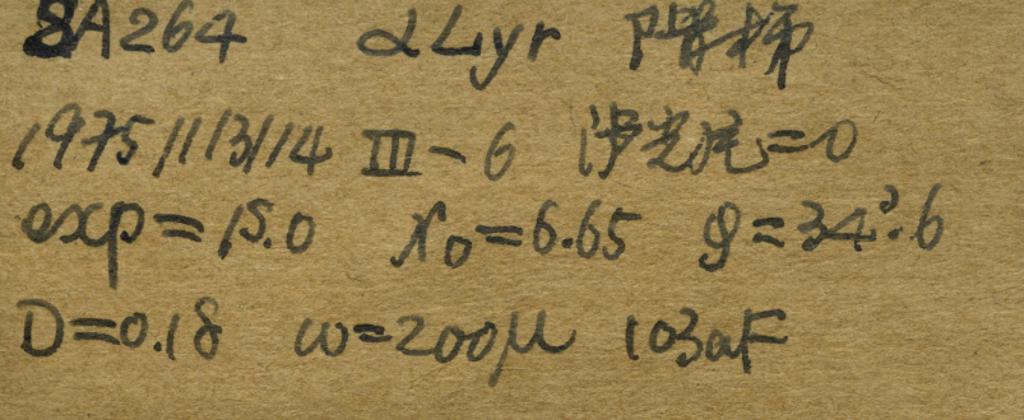 8A264 αLyr 階梯
1975/11/13/14 III-6 涉光尾=0
exp=15.0 X₀=6.65 g=34°.6
D=0.18 w=200μ 103aF